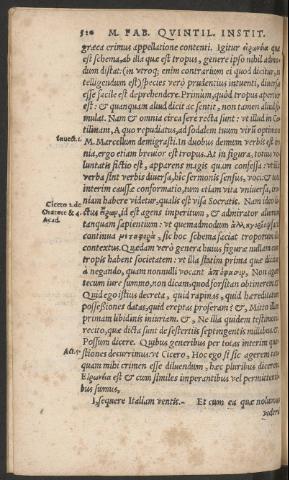 520 M. FAB. QVINTIL. INSTIT.
græca erimus appellatione contenti. Igitur εἰρωνία quæ
est schema, ab illa quæ est tropus, genere ipso nihil admo-
dum distat: (in utroq; enim contrarium ei quod dicitur, in
telligendum est) species verò prudentius intuenti, diuersas
esse facile est deprehendere. Primum, quòd tropus apertior
est: & quanquam aliud dicit ac sentit, non tamen aliud si-
mulat. Nam & omnia circa ferè recta sunt: vt illud in Ca-
tilinam, A quo repudiatus, ad sodalem tuum virũ optimum
Inuect. 1.
M. Marcellum demigrasti. In duobus demum verbis est iro
nia, ergo etiam breuior est tropus. At in figura, totius vo
luntatis fictio est, apparens magis quàm confessa: vt illic
verba sint verbis diuersa, hic sermonis sensus, voci: &
interim causæ conformatio, tum etiam vita vniuersa, iro
niam habere videtur, qualis est visa Socratis. Nam ideo di
Cicero 2. de
Oratore & 4.
Acad.
ctus εἴρων, id est agens imperitum, & admirator aliorum
tanquam sapientium: vt quemadmodum ἀλληγορίαν facit
continua μεταφορὰ, sic hoc schema faciat troporum ille
contextus. Quædam verò genera huius figuræ nullam cum
tropis habent societatem: vt illa statim prima quæ ducitur
à negando, quam nonnulli vocant ἀντίφρασιν. Non agam
tecum iure summo, non dicam, quod forsitan obtinerem: &
Quid ego istius decreta, quid rapinas, quid hæreditatum
possessiones datas, quid ereptas proferam? & Mitto illam
primam libidinis iniuriam. &, Ne illa quidem testimonia
recito, quæ dicta sunt de sestertiis septingentis millibus. &,
Possum dicere. Quibus generibus per totas interim quæ-
Act. 5
stiones decurrimus: vt Cicero, Hoc ego si sic agerem tan-
quam mihi crimen esse diluendum, hæc pluribus dicerem.
Εἰρωνία est & cum similes imperantibus vel permittenti-
bus sumus,
I, sequere Italiam ventis.- Et cum ea quæ nolumus
videri